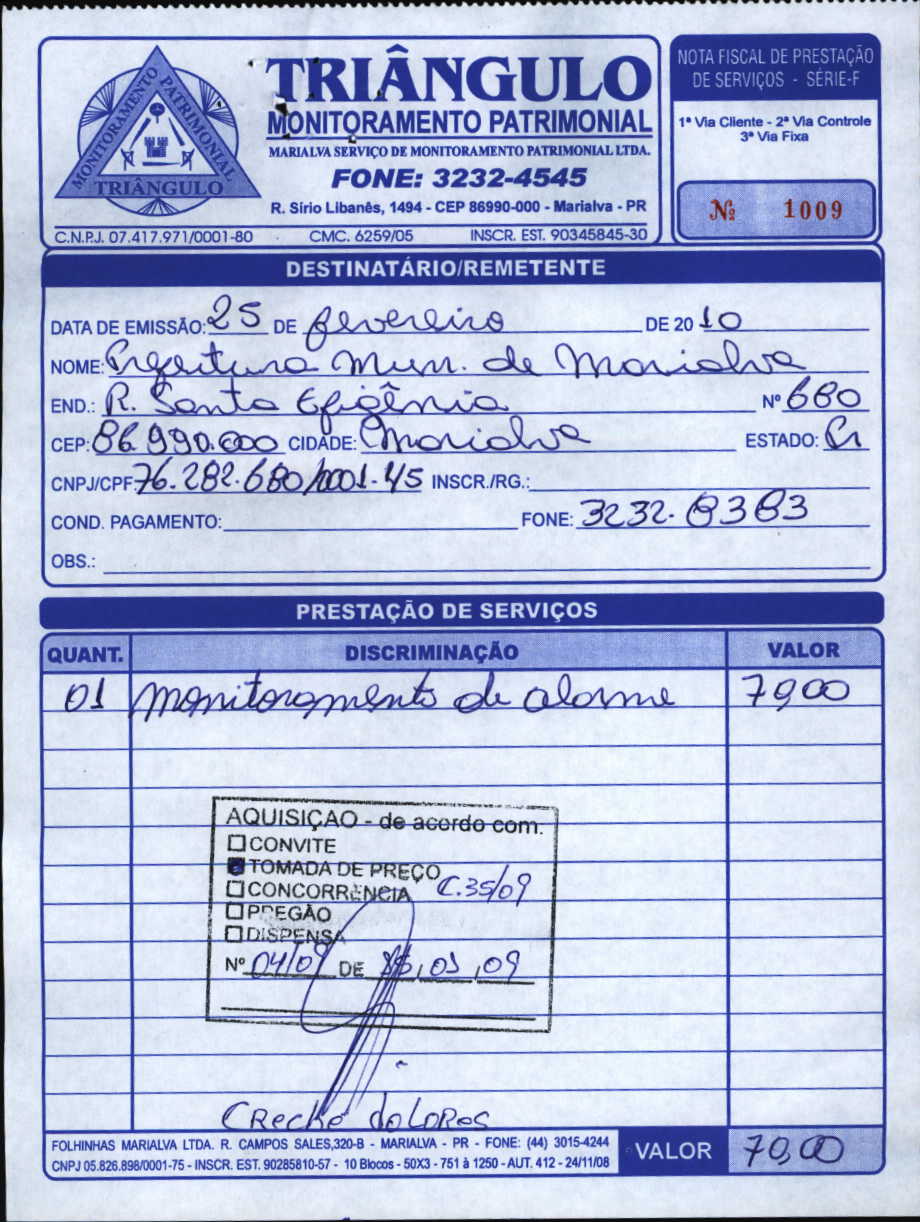 TRIÂNGULO
MONITORAMENTO PATRIMONIAL
MARIALVA SERVIÇO DE MONITORAMENTO PATRIMONIAL LTDA.
FONE: 3232-4545
R. Sírio Libanês, 1494 - CEP 86990-000 - Marialva - PR
MONITORAMENTO PATRIMONIAL
TRIÂNGULO
C.N.P.J. 07.417.971/0001-80 CMC. 6259/05 INSCR. EST. 90345845-30
NOTA FISCAL DE PRESTAÇÃO
DE SERVIÇOS - SÉRIE-F
1ª Via Cliente - 2ª Via Controle
3ª Via Fixa
Nº 1009
DESTINATÁRIO/REMETENTE
DATA DE EMISSÃO: 25 DE fevereiro DE 2010
NOME: Prefeitura Mun. de Marialva
END.: R. Santa Efigênia Nº 680
CEP: 86.990.000 CIDADE: Marialva ESTADO: Pr
CNPJ/CPF 76.282.680/0001-45 INSCR./RG.:
COND. PAGAMENTO: FONE: 3232-8383
OBS.:
PRESTAÇÃO DE SERVIÇOS
QUANT. DISCRIMINAÇÃO VALOR
01 Monitoramento de alarme 70,00
AQUISIÇÃO - de acordo com:
CONVITE
TOMADA DE PREÇO
CONCORRÊNCIA C.35/09
PREGÃO
DISPENSA
Nº 04/09 DE 03, 09
Creche do Lopes
FOLHINHAS MARIALVA LTDA. R. CAMPOS SALES,320-B - MARIALVA - PR - FONE: (44) 3015-4244
CNPJ 05.826.898/0001-75 - INSCR. EST. 90285810-57 - 10 Blocos - 50X3 - 751 à 1250 - AUT. 412 - 24/11/08
VALOR 70,00